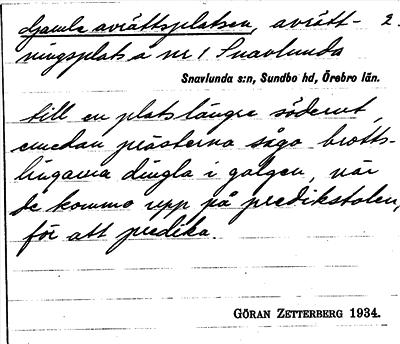 Gamla avrättsplatsen, avrätt- 2.
ningsplats å nr 1 Snavlunda
Snavlunda s:n, Sundbo hd, Örebro län.
till en plats längre söderut,
emedan prästerna sågo brotts-
lingarna dingla i galgen, när
de kommo upp på predikstolen,
för att predika.
GÖRAN ZETTERBERG 1934.